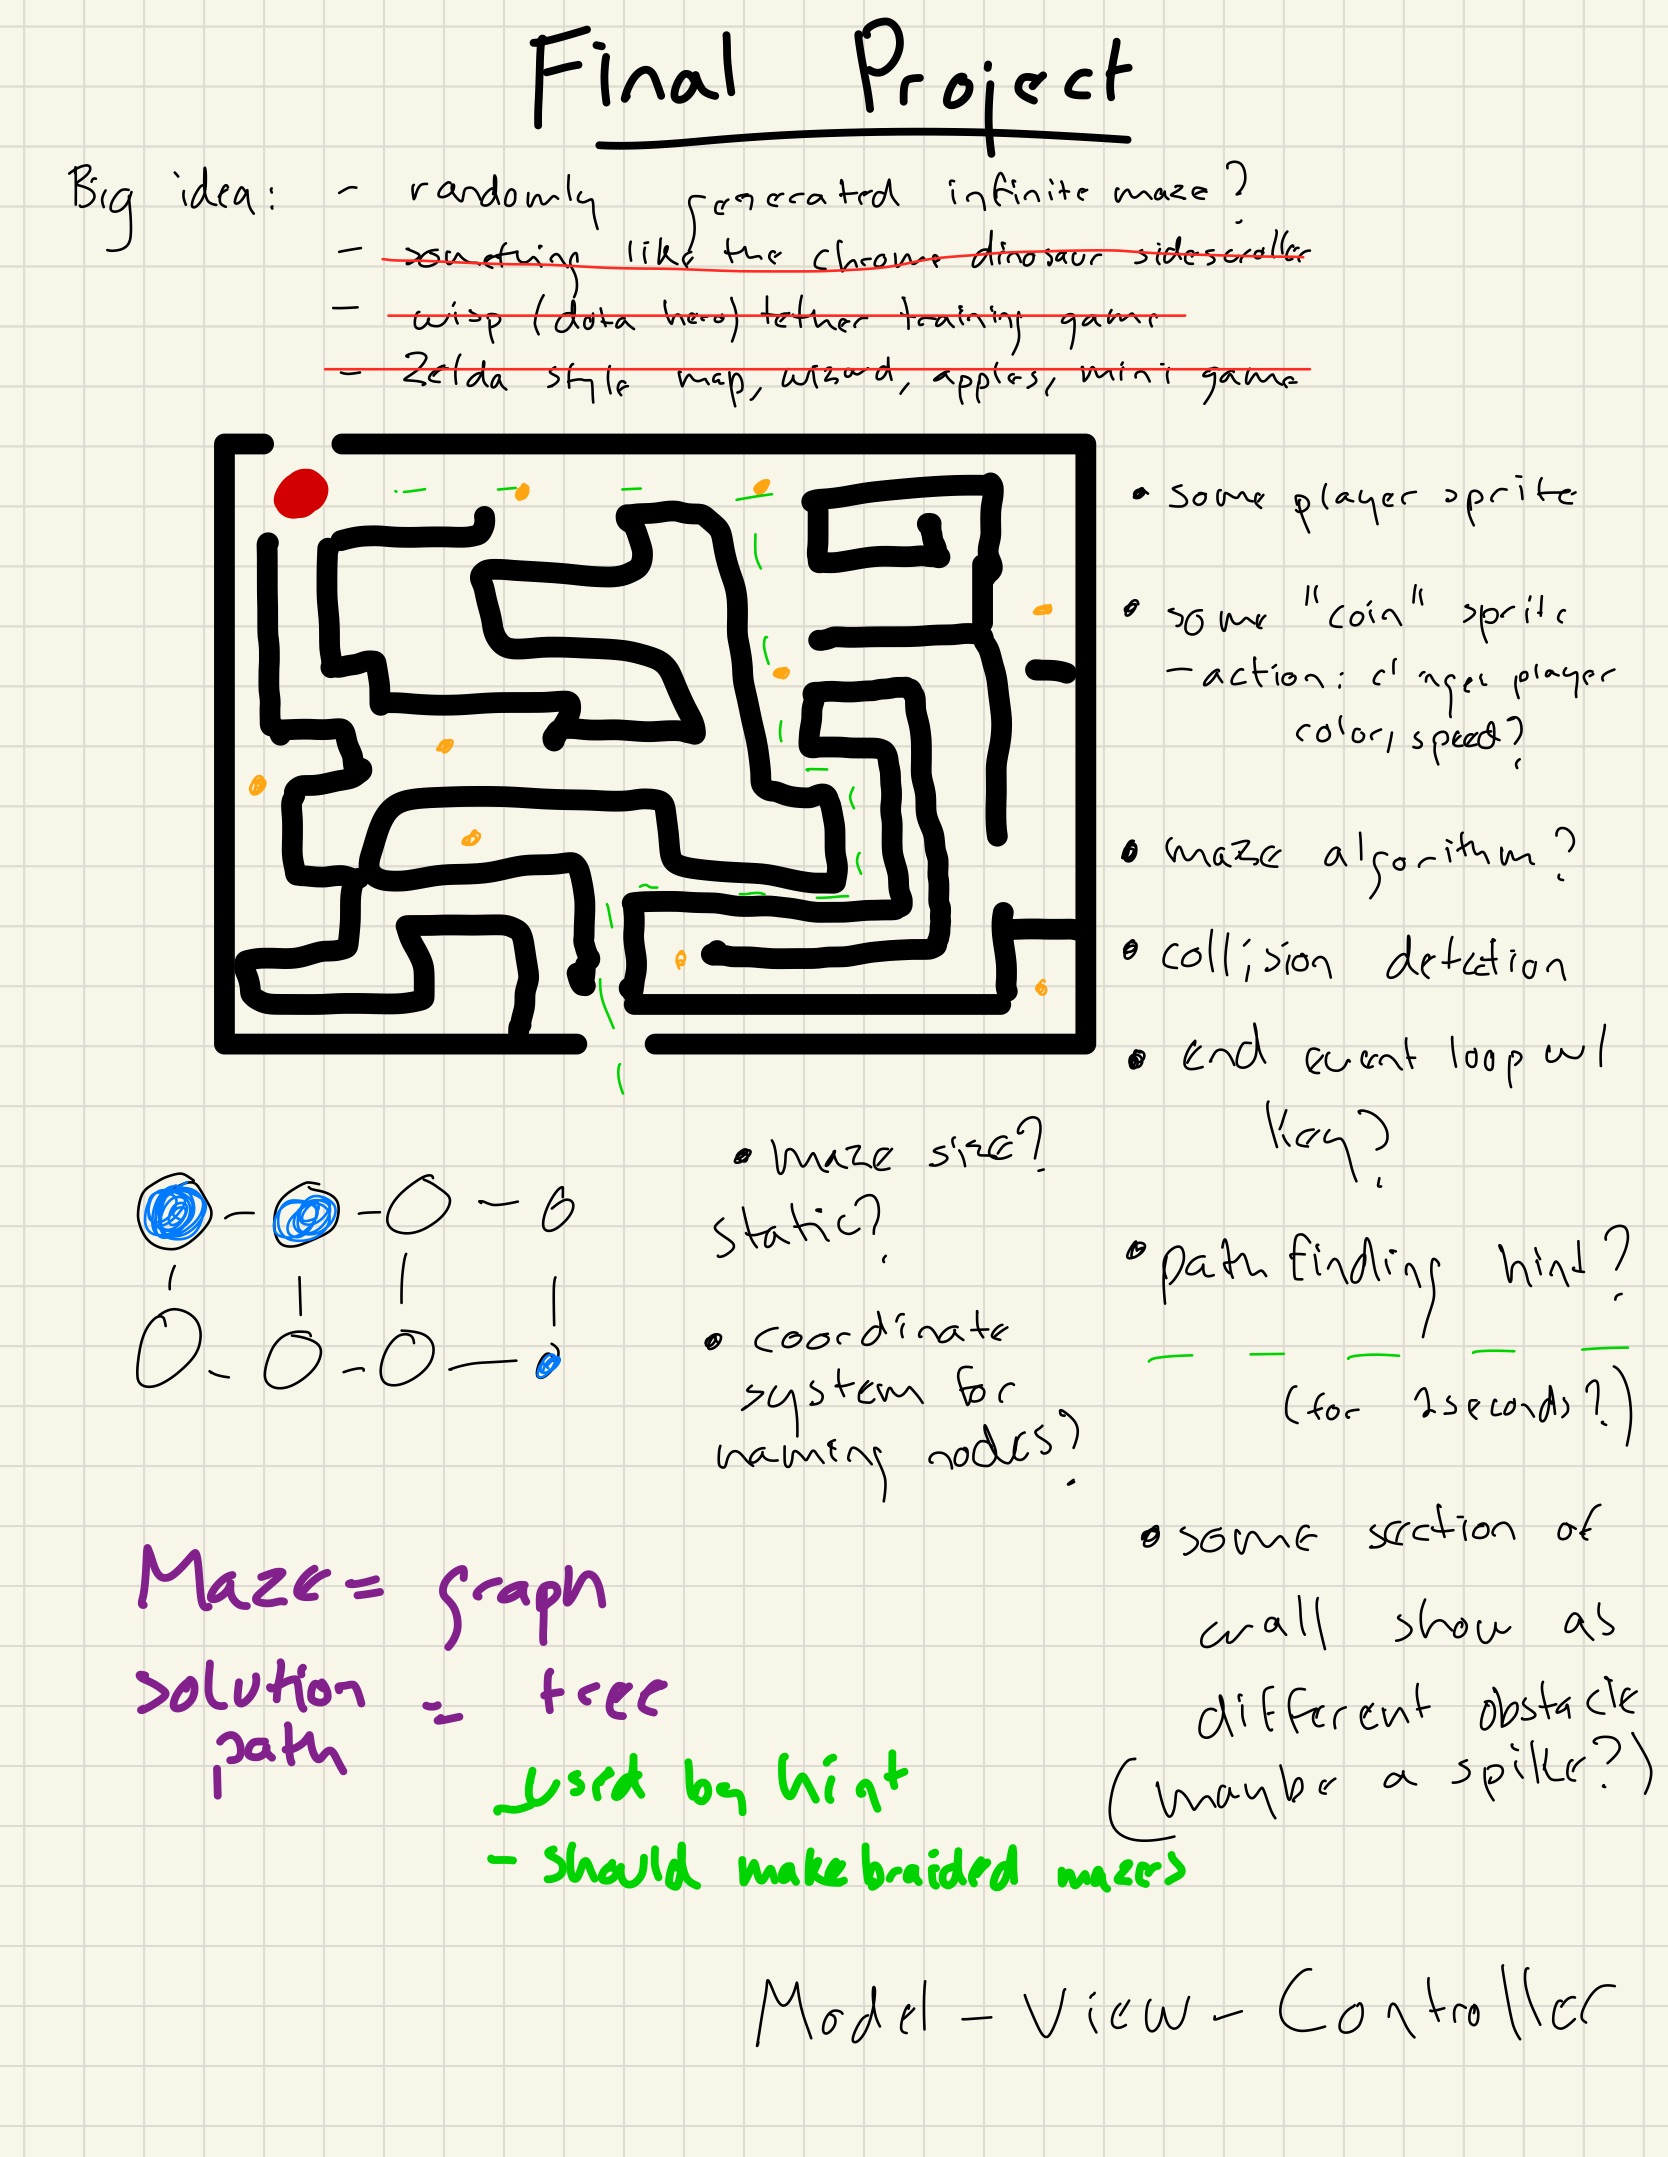 Final Project
Big idea: - randomly generated infinite maze?
- something like the chrome dinosaur sidescroller
- wisp (dota hero) tether training game
- Zelda style map, wizard, apples, mini game
• some player sprite
• some "coin" sprite
- action: changes player
color, speed?
• maze algorithm?
• collision detection
• end event loop w/
key?
• maze size?
static?
• coordinate
system for
naming nodes?
• path finding hint?
(for 2 seconds?)
• some section of
wall show as
different obstacle
(maybe a spike?)
Maze = graph
solution = tree
path
- used by hint
- should make braided mazes
Model - View - Controller